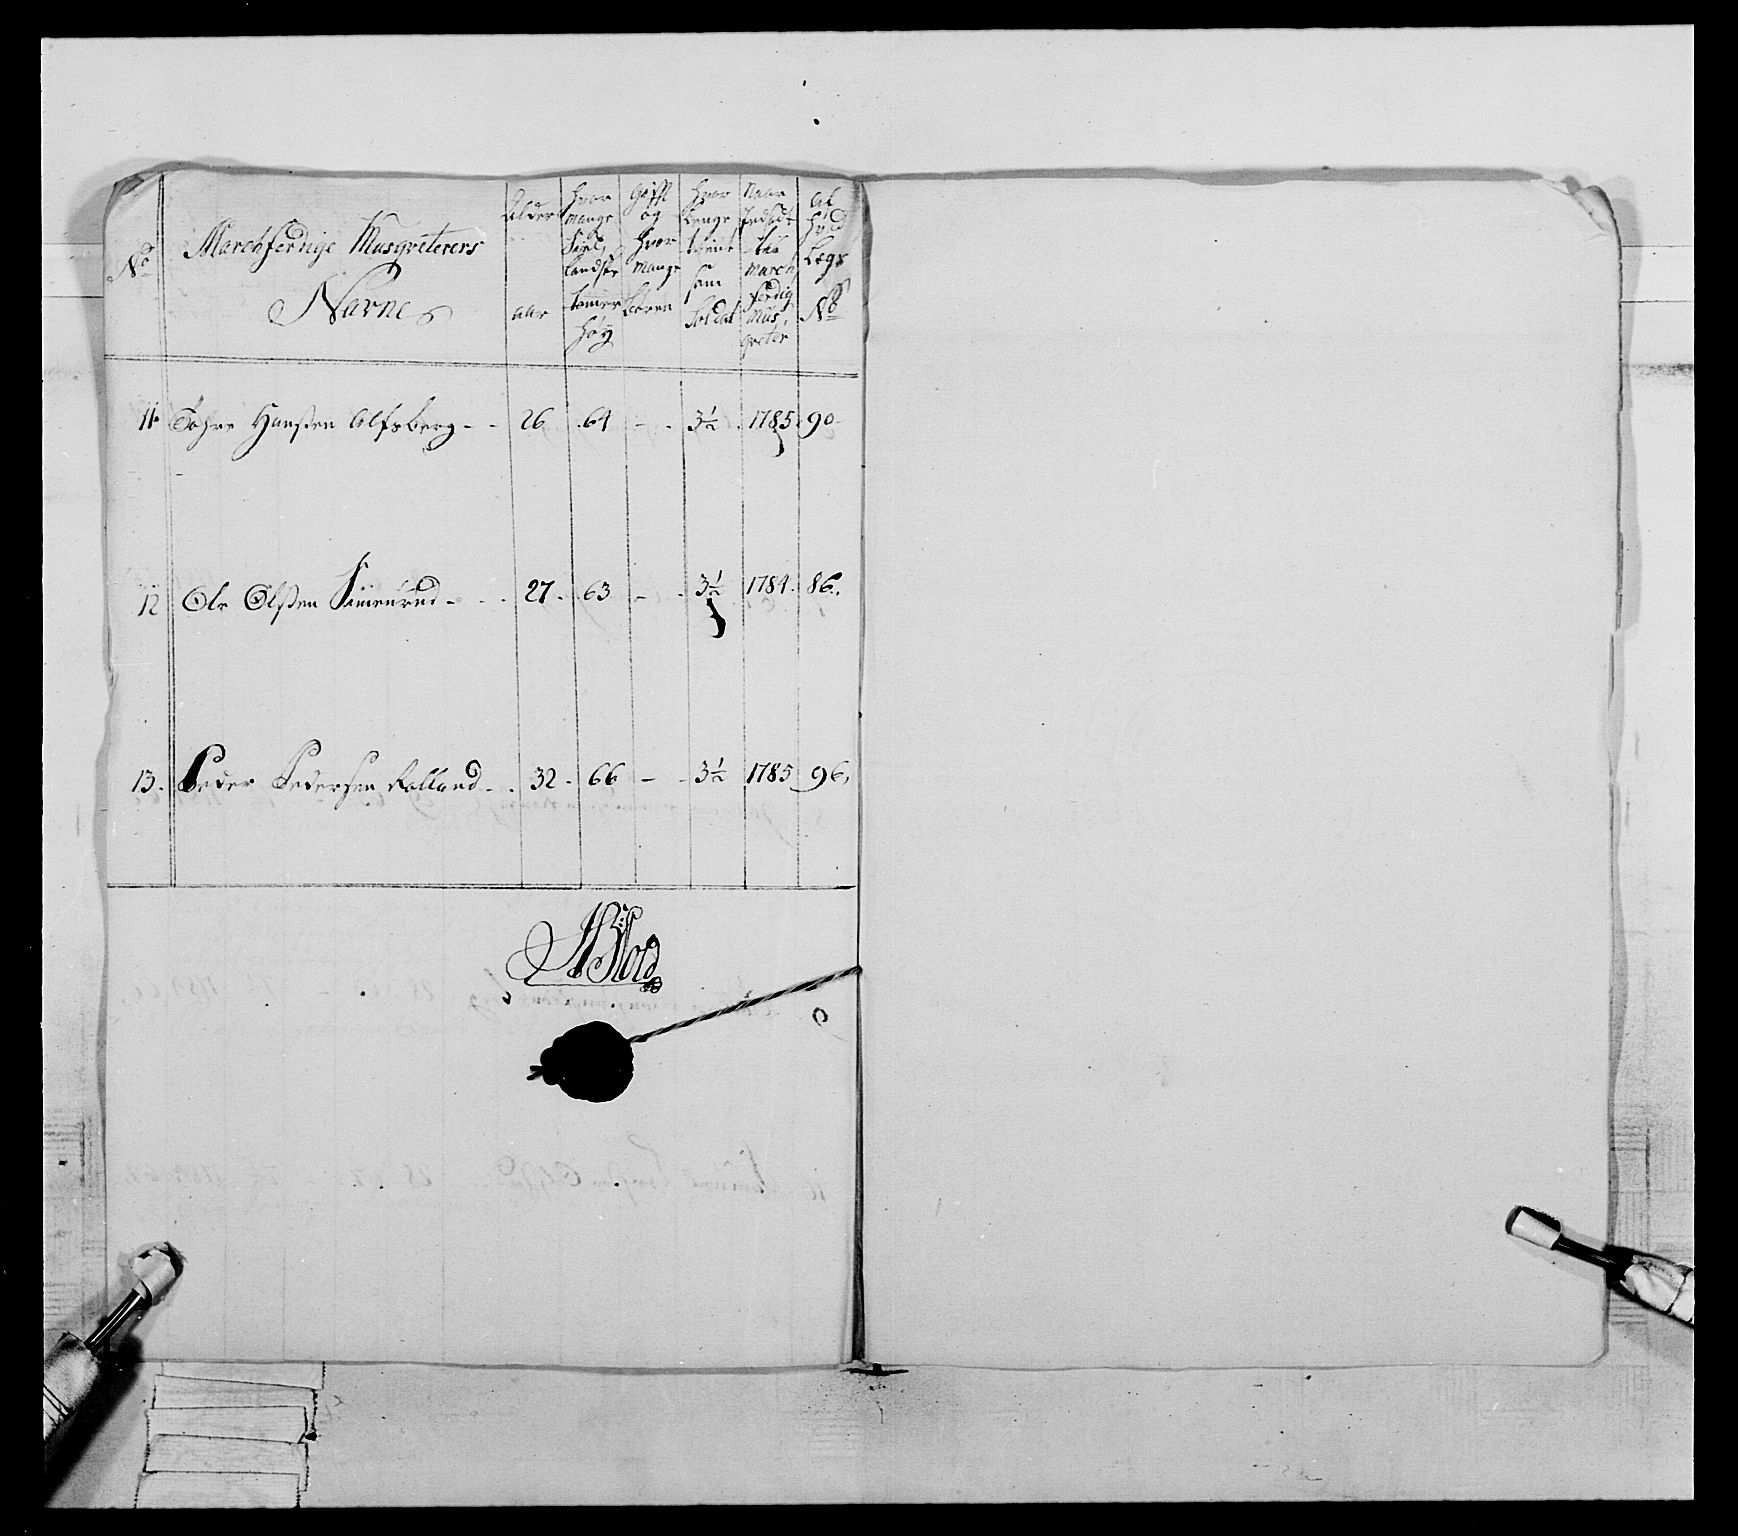 No
Marchferdige Musqveterers
Navne
Alder
aar
Hvor
mange
Siel,
landske
tomer
høy
Gifft
og
Hvor
mange
børen
Hvor
lenge
tient
som
Soldat
Naar
Indsadt
til
march
ferdig
Mus,
qveter
Af
hvad
Legs
No
11. Tohre Hanssen Alfsberg - - 26 . 64 - . 3½ . 1785 . 90
12 Ole Olssen Simenrud - . . 27 . . 63 - . 3½ 1784 . 86.
13. Peder Pedersen Rolland - . 32 . 66 - . 3½ 1785 96,